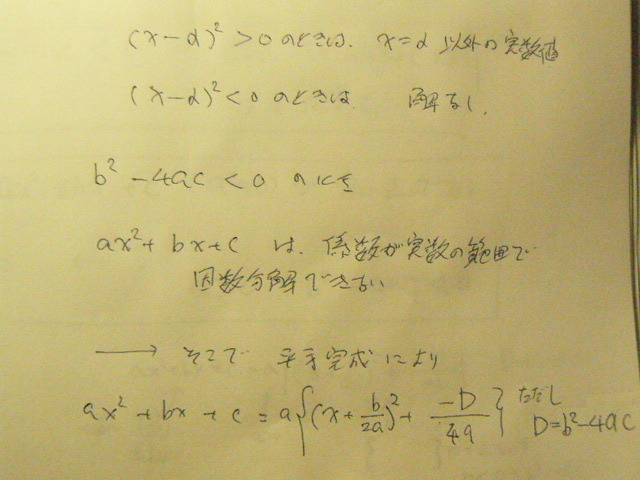 (x-α)² > 0 のときは、 x=α 以外の実数値
(x-α)² < 0 のときは 解なし.
b² - 4ac < 0 のとき
ax² + bx + c は、係数が実数の範囲で
因数分解できない
→ そこで 平方完成により
ax² + bx + c = a{(x + b/2a)² + -D/4a} ただし
D=b²-4ac